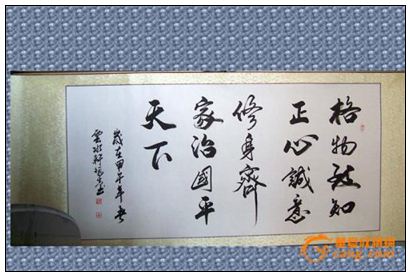 格物致知
正心誠意
修身齊
家治國平
天下
歲在甲午年書